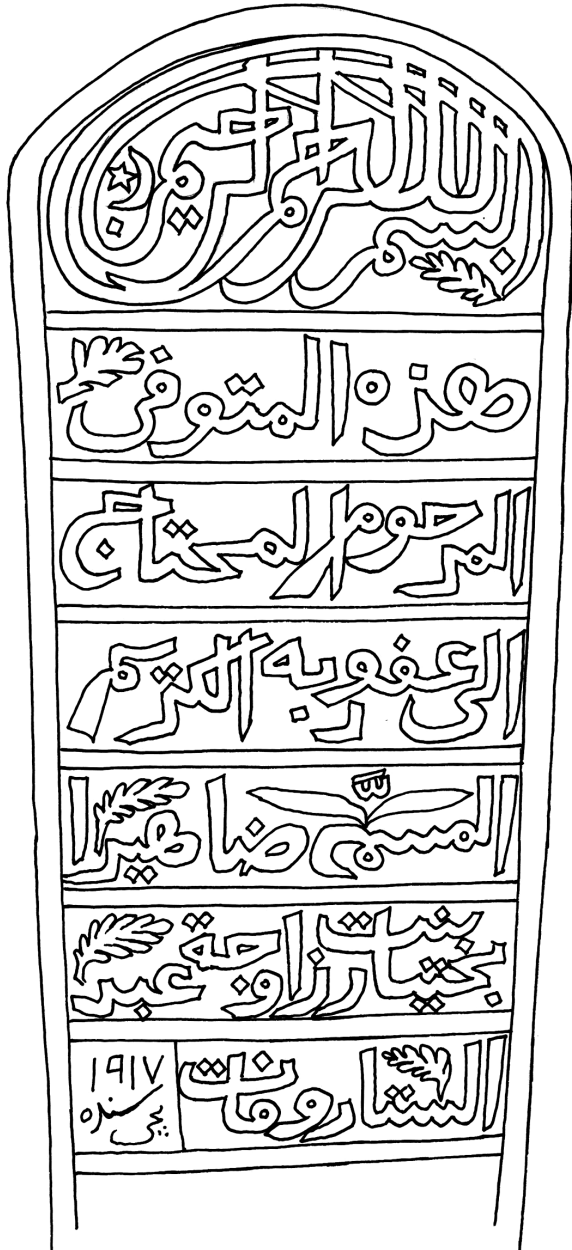 بسم الله الرحمن الرحيم
هزه المتوفى
المرحوم المحتاج
الى عفو ربه الكريم
المسمى ضاهيرا
بنت بختيار زاوجة عبد
الستار وفات ١٩١٧ سنده